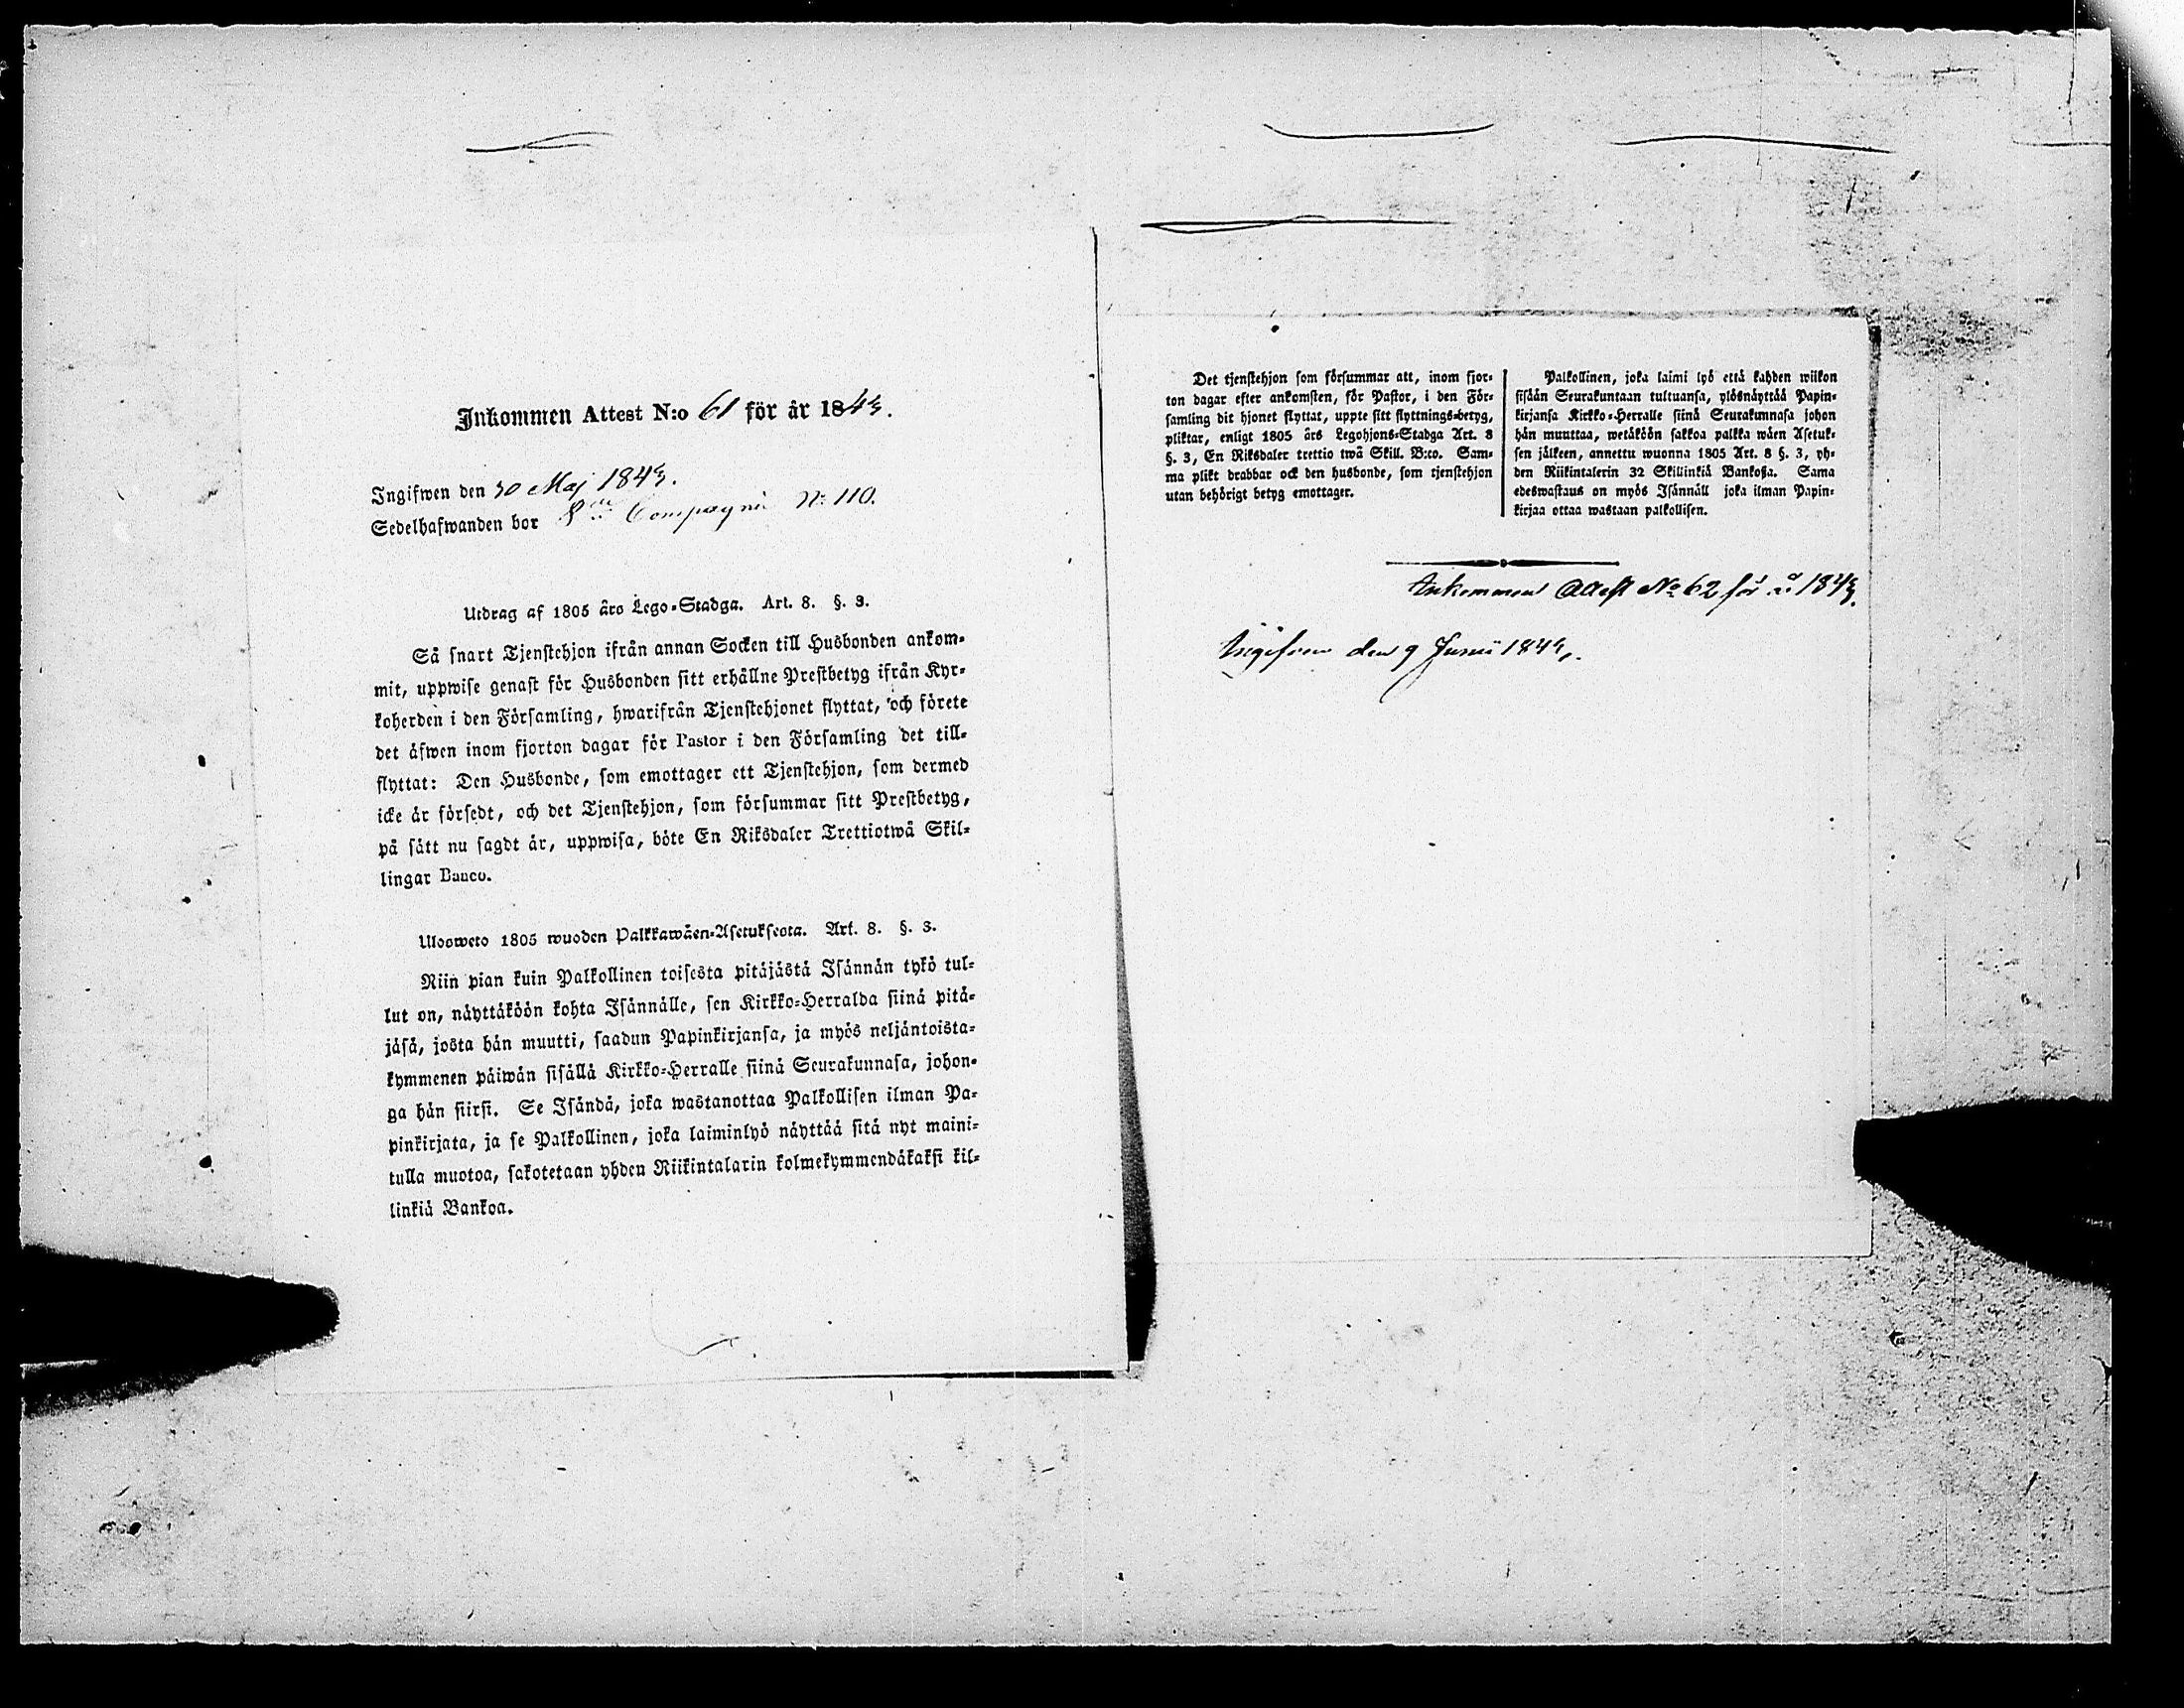 Inkommen Attest N:o 61 för år 1844.
Ingifwen den 30 Maj 1844.
Sedelhafwanden bor 8de Compagni N: 110.
Utdrag af 1805 års Lego-Stadga. Art. 8. §. 3.
Så snart Tjenstehjon ifrån annan Socken till Husbonden ankom-
mit, uppwise genast för Husbonden sitt erhållne Prestbetyg ifrån Kyr-
koherden i den Församling, hwarifrån Tjenstehjonet flyttat, och förete
det åfwen inom fjorton dagar för Pastor i den Församling det till-
flyttat: Den Husbonde, som emottager ett Tjenstehjon, som dermed
icke år försedt, och det Tjenstehjon, som försummar sitt Prestbetyg,
på sått nu sagdt år, uppwisa, böte En Riksdaler Trettiotwå Skil-
lingar Banco.
Ulosweto 1805 wuoden Palkkawåen-Asetuksesta. Art. 8. §. 3.
Niin pian kuin Palkollinen toisesta pitåjåstå Isånnån tykö tul-
lut on, nåyttåköön kohta Isånnålle, sen Kirkko-Herralda siinå pitå-
jåså, josta hån muutti, saadun Papinkirjansa, ja myös neljåntoista-
kymmenen påiwån sisållå Kirkko-Herralle siinå Seurakunnasa, johon-
ga hån siirsi. Se Isåndå, joka wastanottaa Palkollisen ilman Pa-
pinkirjata, ja se Palkollinen, joka laiminlyö nåyttåå sitå nyt maini-
tulla muotoa, sakotetaan yhden Riikintalarin kolmekymmendåkaksi kil-
linkiå Bankoa.
Det tjenstehjon som försummar att, inom fjor-
ton dagar efter ankomsten, för Pastor, i den För-
samling dit hjonet flyttat, uppte sitt flyttnings-betyg,
pliktar, enligt 1805 års Legohjons-Stadga Art. 8
§. 3, En Riksdaler trettio twå Skill. B:co. Sam-
ma plikt drabbar ock den husbonde, som tjenstehjon
utan behörigt betyg emottager.
Palkollinen, joka laimi lyö ettå kahden wiikon
sisåån Seurakuntaan tultuansa, ylösnåyttåå Papin-
kirjansa Kirkko-Herralle siinå Seurakunnasa johon
hån muuttaa, wetåköön sakkoa palkka wåen Asetuk-
sen jålkeen, annettu wuonna 1805 Art. 8 §. 3, yh-
den Riikintalerin 32 Skillinkiå Bankossa. Sama
edeswastaus on myös Isånnåll joka ilman Papin-
kirjaa ottaa wastaan palkollisen.
Inkommen Attest No 62 för år 1844.
Ingifven den 9 Junii 1844.